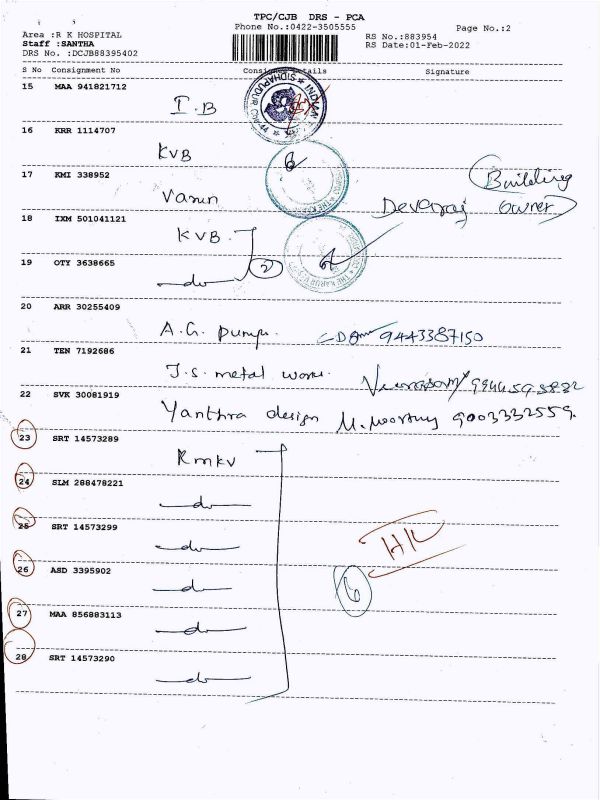 TPC/CJB DRS - PCA
Phone No.:0422-3505555
Page No.:2
Area :R K HOSPITAL
Staff :SANTHA
DRS No. :DCJB88395402
RS No.:883954
RS Date:01-Feb-2022
S No Consignment No Consignee Details Signature
15 MAA 941821712
I.B
16 KRR 1114707
KVB
17 KMI 338952
Varun
Devaraj
Building
owner
18 IXM 501041121
KVB.
2
19 OTY 3638665
do
20 ARR 30255409
A.G. Pumps. 9443387150
21 TEN 7192686
J.S. metal works.
22 SVK 30081919
Yanthra design M.moorthy 9003332559.
23 SRT 14573289
Rmkv
24 SLM 288478221
do
25 SRT 14573299
do
26 ASD 3395902
do
6
HK
27 MAA 856883113
do
28 SRT 14573290
do